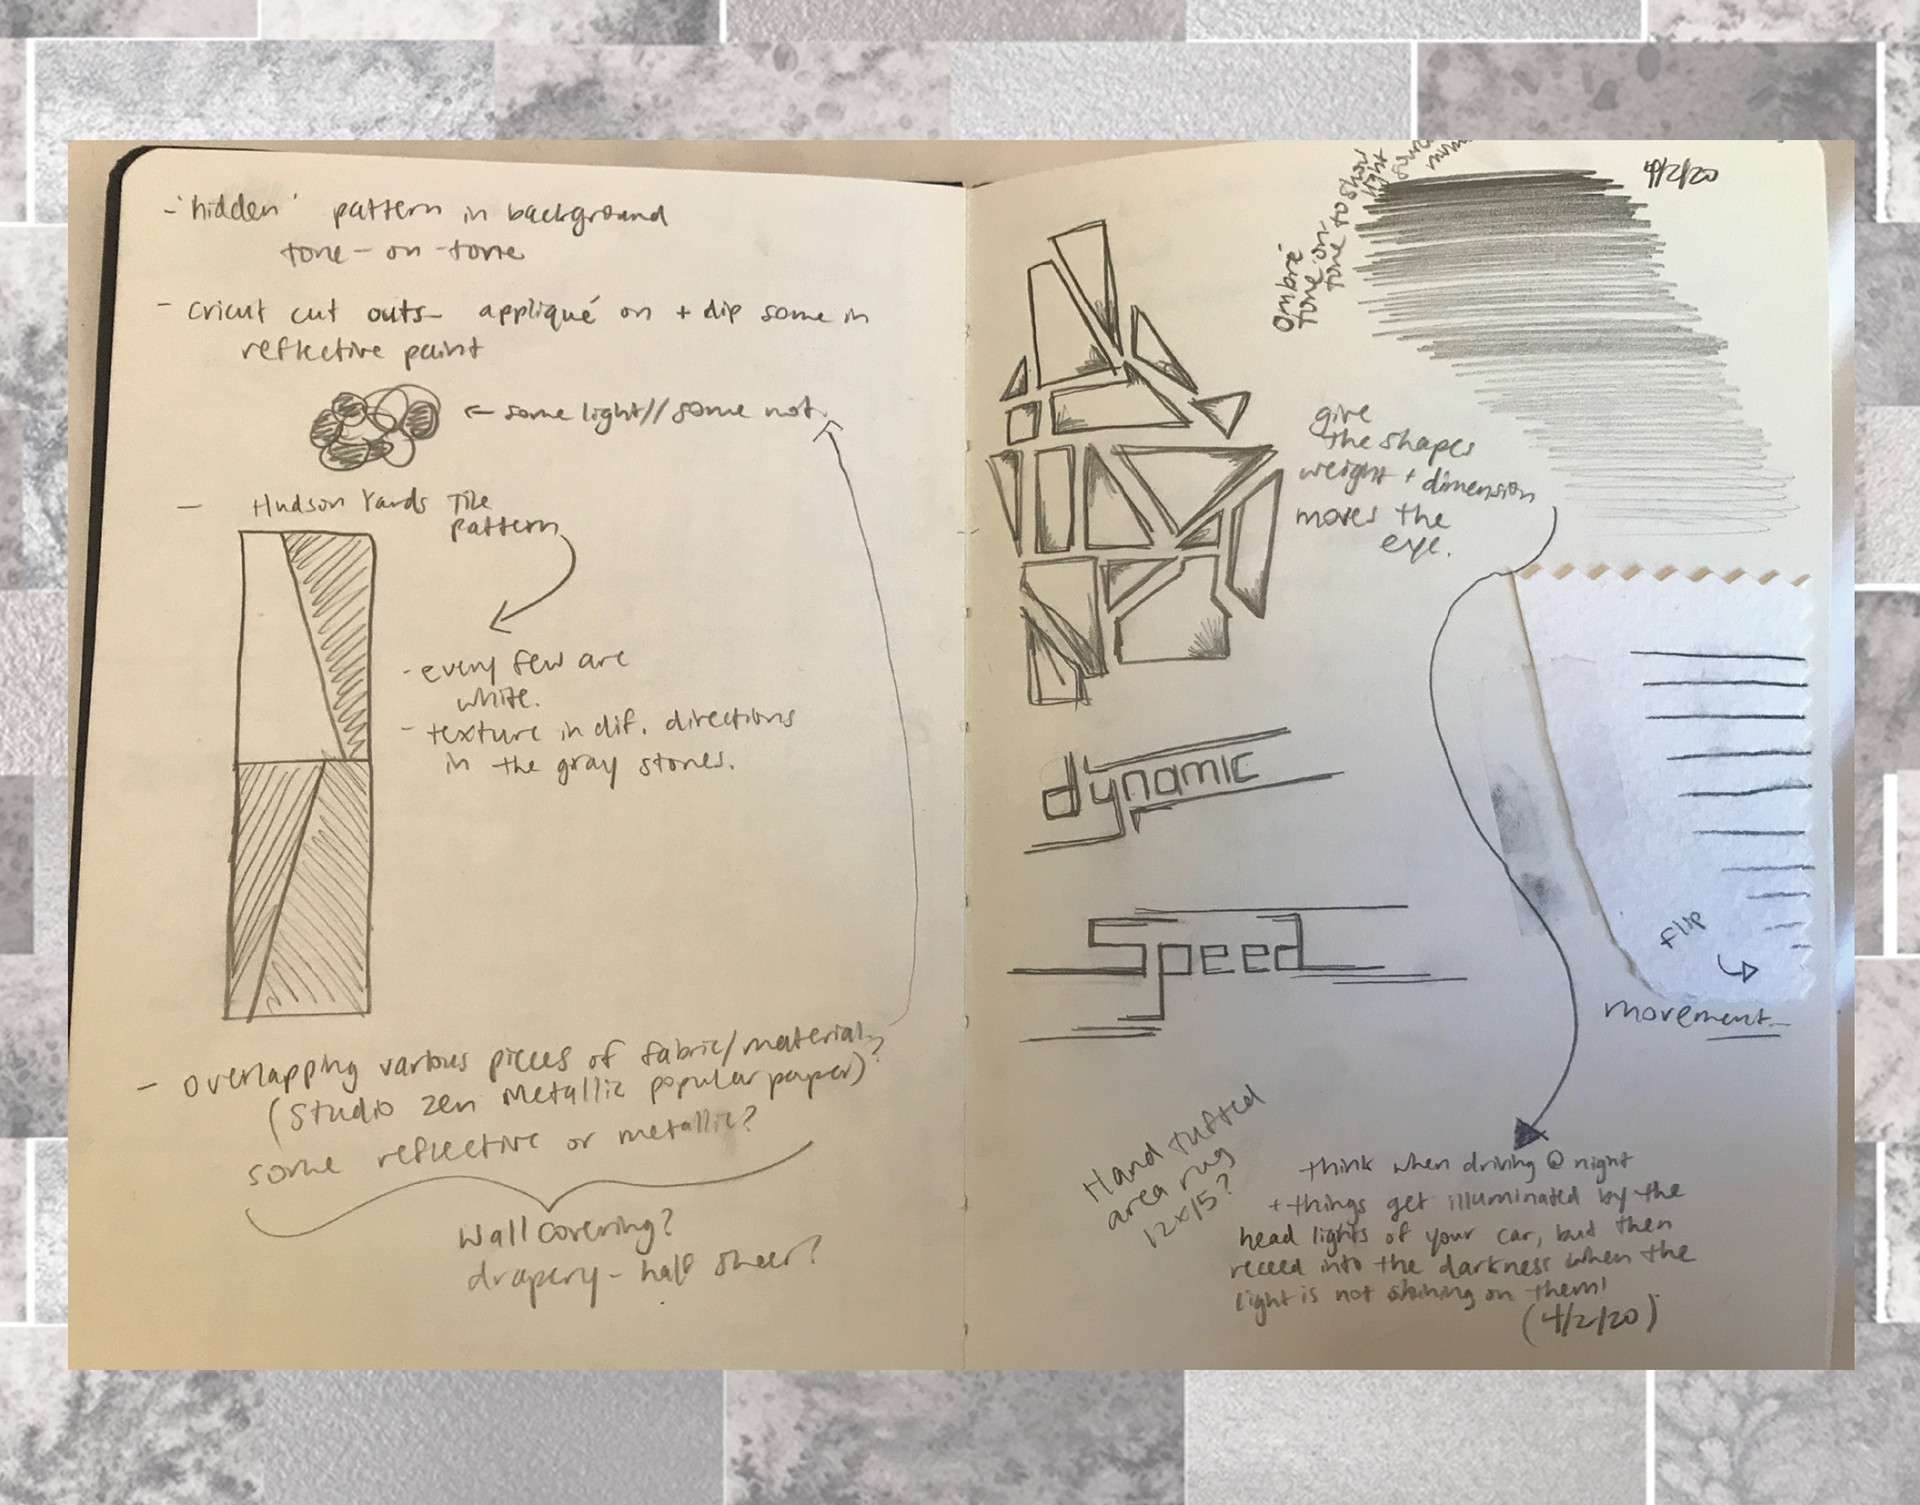 - 'hidden' pattern in background
tone-on-tone
- cricut cut outs- appliqué on + dip some in
reflective paint
← some light//some not.
- Hudson Yards Tile
pattern
- every few are
white.
- texture in dif. directions
in the gray stones.
- overlapping various pieces of fabric/material?
(Studio zen metallic popular paper)
some reflective or metallic?
Wall covering?
drapery - half sheer?
4/2/20
Ombré
tone on-
tone to show
light
give
the shapes
weight + dimension
moves the
eye.
dynamic
Speed
flip
movement
Hand tufted
area rug
12x15?
think when driving @ night
+ things get illuminated by the
head lights of your car, but then
receed into the darkness when the
light is not shining on them!
(4/2/20)